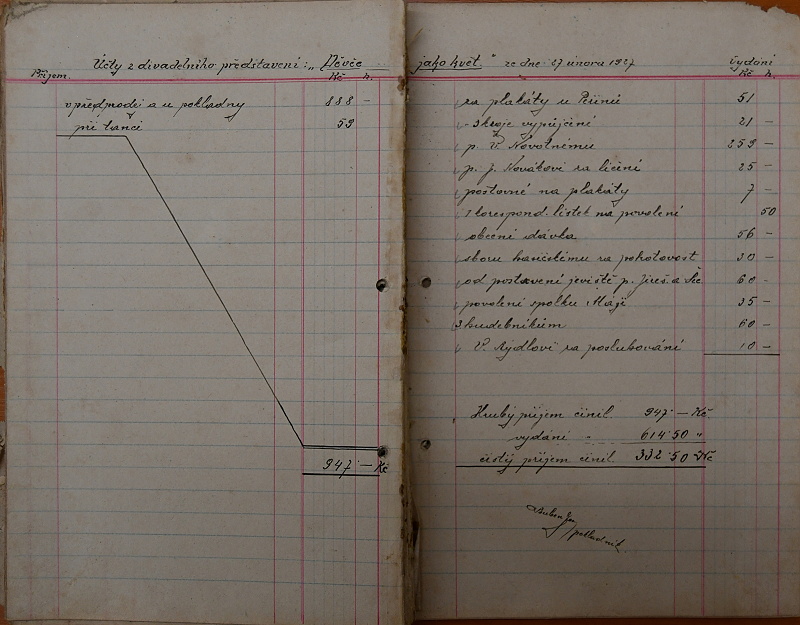 Účty z divadelního představení: „Děvče
Příjem. Kč h.
v předprodei a u pokladny 888 –
při tanci 59
947 – Kč
jako květ." ze dne: 27 února 1927 Vydání
Kč h.
za plakáty u Peřinů 51
3 kroje vypůjčení 21 –
p. V. Novotnému 259 –
p. J. Novákovi za líčení 25 –
poštovné na plakáty 7 –
1 korespond. lístek na povolení 50
obecní dávka 56 –
sboru hasičskému za pohotovost 30 –
od postavení jeviště p. Jireš. a 60 –
povolení spolku Máji 35 –
3 hudebníkům 60 –
V. Rýdlovi za posluhování 10 –
Hrubý příjem činil. 947 – Kč
vydání " 614·50 "
čistý příjem činil. 332·50 Kč
pokladník